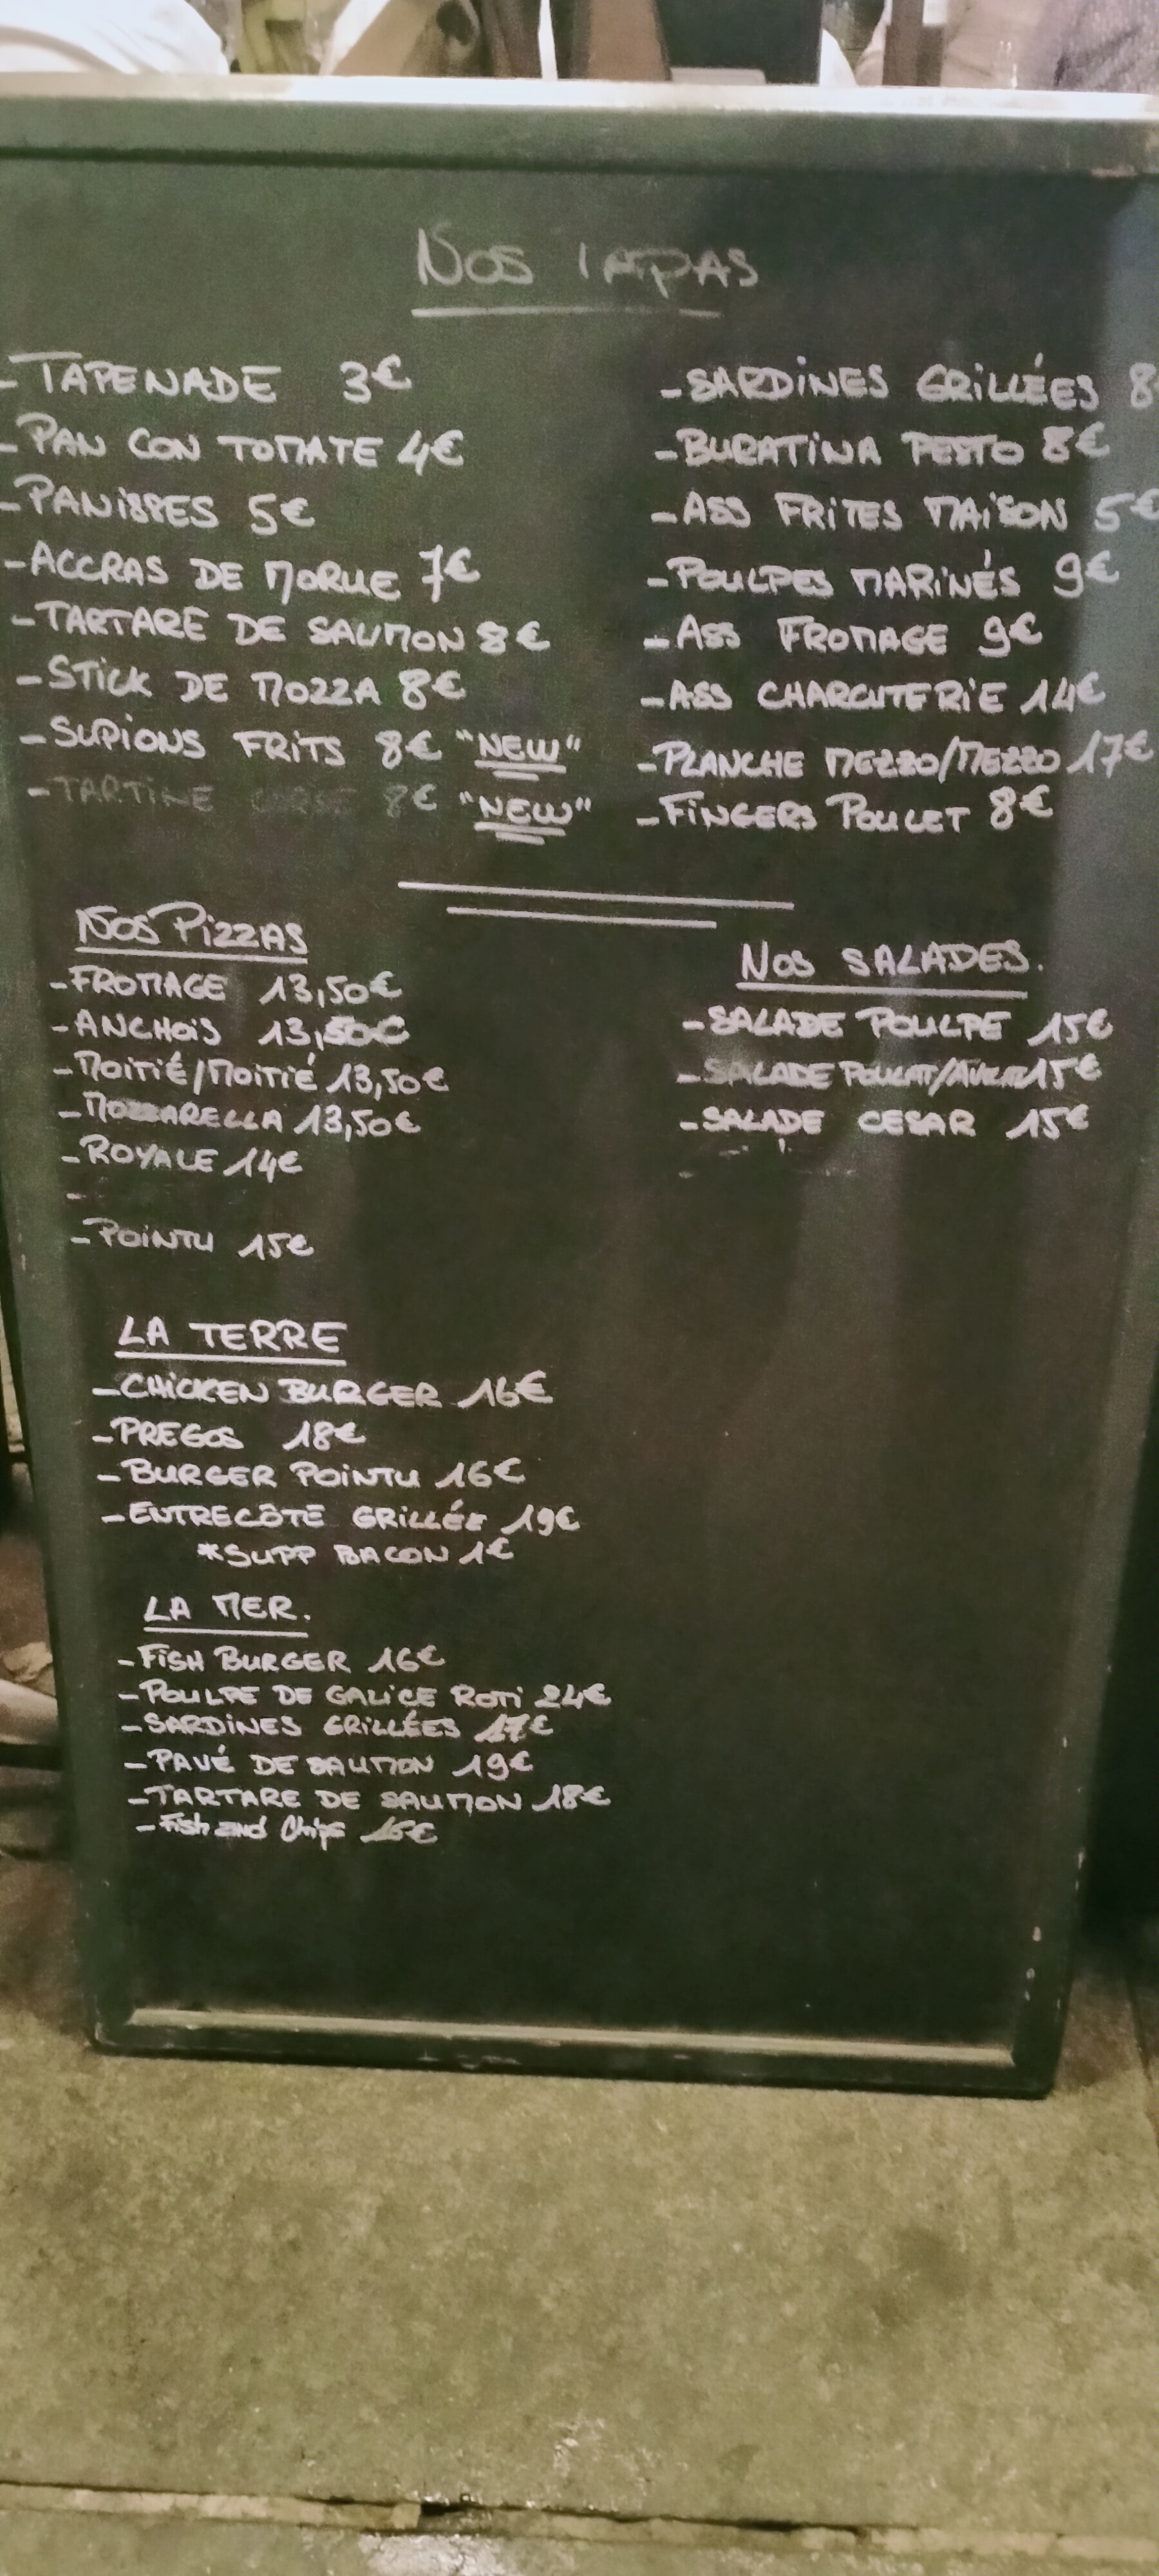 Nos TAPAS
- TAPENADE 3€
- PAN CON TOMATE 4€
- PANISSES 5€
- ACCRAS DE MORUE 7€
- TARTARE DE SAUMON 8€
- STICK DE MOZZA 8€
- SUPIONS FRITS 8€ "NEW"
- TARTINE 8€ "NEW"
- SARDINES GRILLÉES 8
- BURATINA PESTO 8€
- ASS FRITES MAISON 5€
- POULPES MARINÉS 9€
- ASS FROMAGE 9€
- ASS CHARCUTERIE 14€
- PLANCHE MEZZO/MEZZO 17€
- FINGERS POULET 8€
NOS PIZZAS
- FROMAGE 13,50€
- ANCHOIS 13,50€
- MOITIÉ/MOITIÉ 13,50€
- MOZZARELLA 13,50€
- ROYALE 14€
-
- POINTU 15€
NOS SALADES.
- SALADE POULPE 15€
- SALADE 15€
- SALADE CESAR 15€
LA TERRE
- CHICKEN BURGER 16€
- PREGOS 18€
- BURGER POINTU 16€
- ENTRECÔTE GRILLÉE 19€
*SUPP BACON 1€
LA MER.
- FISH BURGER 16€
- POULPE DE GALICE ROTI 24€
- SARDINES GRILLÉES 17€
- PAVÉ DE SAUMON 19€
- TARTARE DE SAUMON 18€
- Fish and Chips 16€